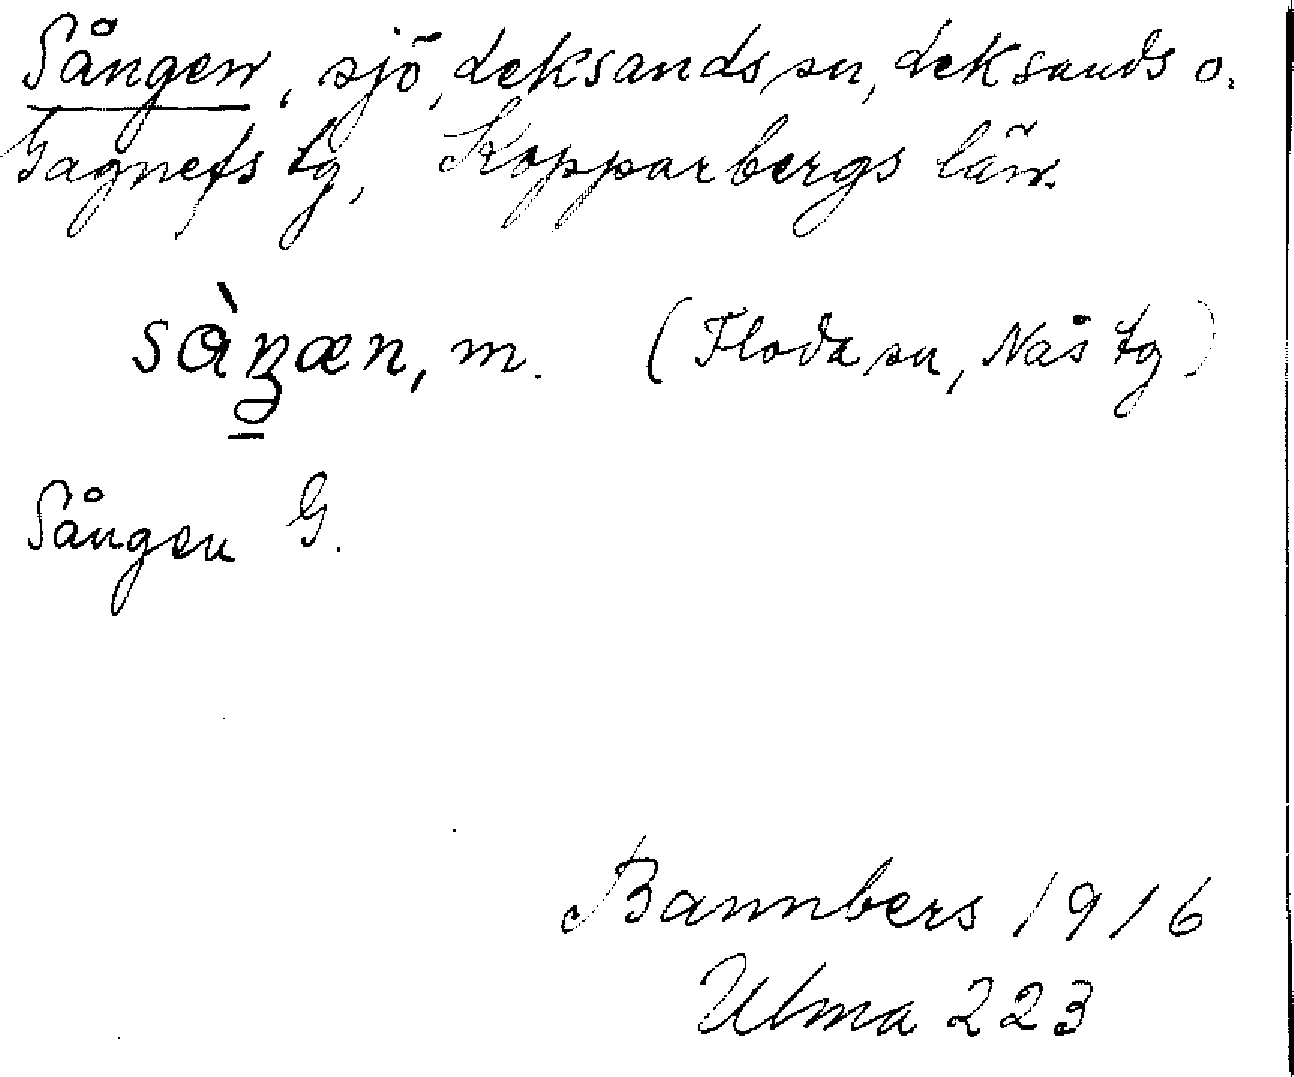 Sången, sjö, Leksands sn, Leksands o.
Gagnefs tg, Kopparbergs län.
m. (Floda sn, Nås tg)
Sången G.
Bannbers 1916
Ulma 223